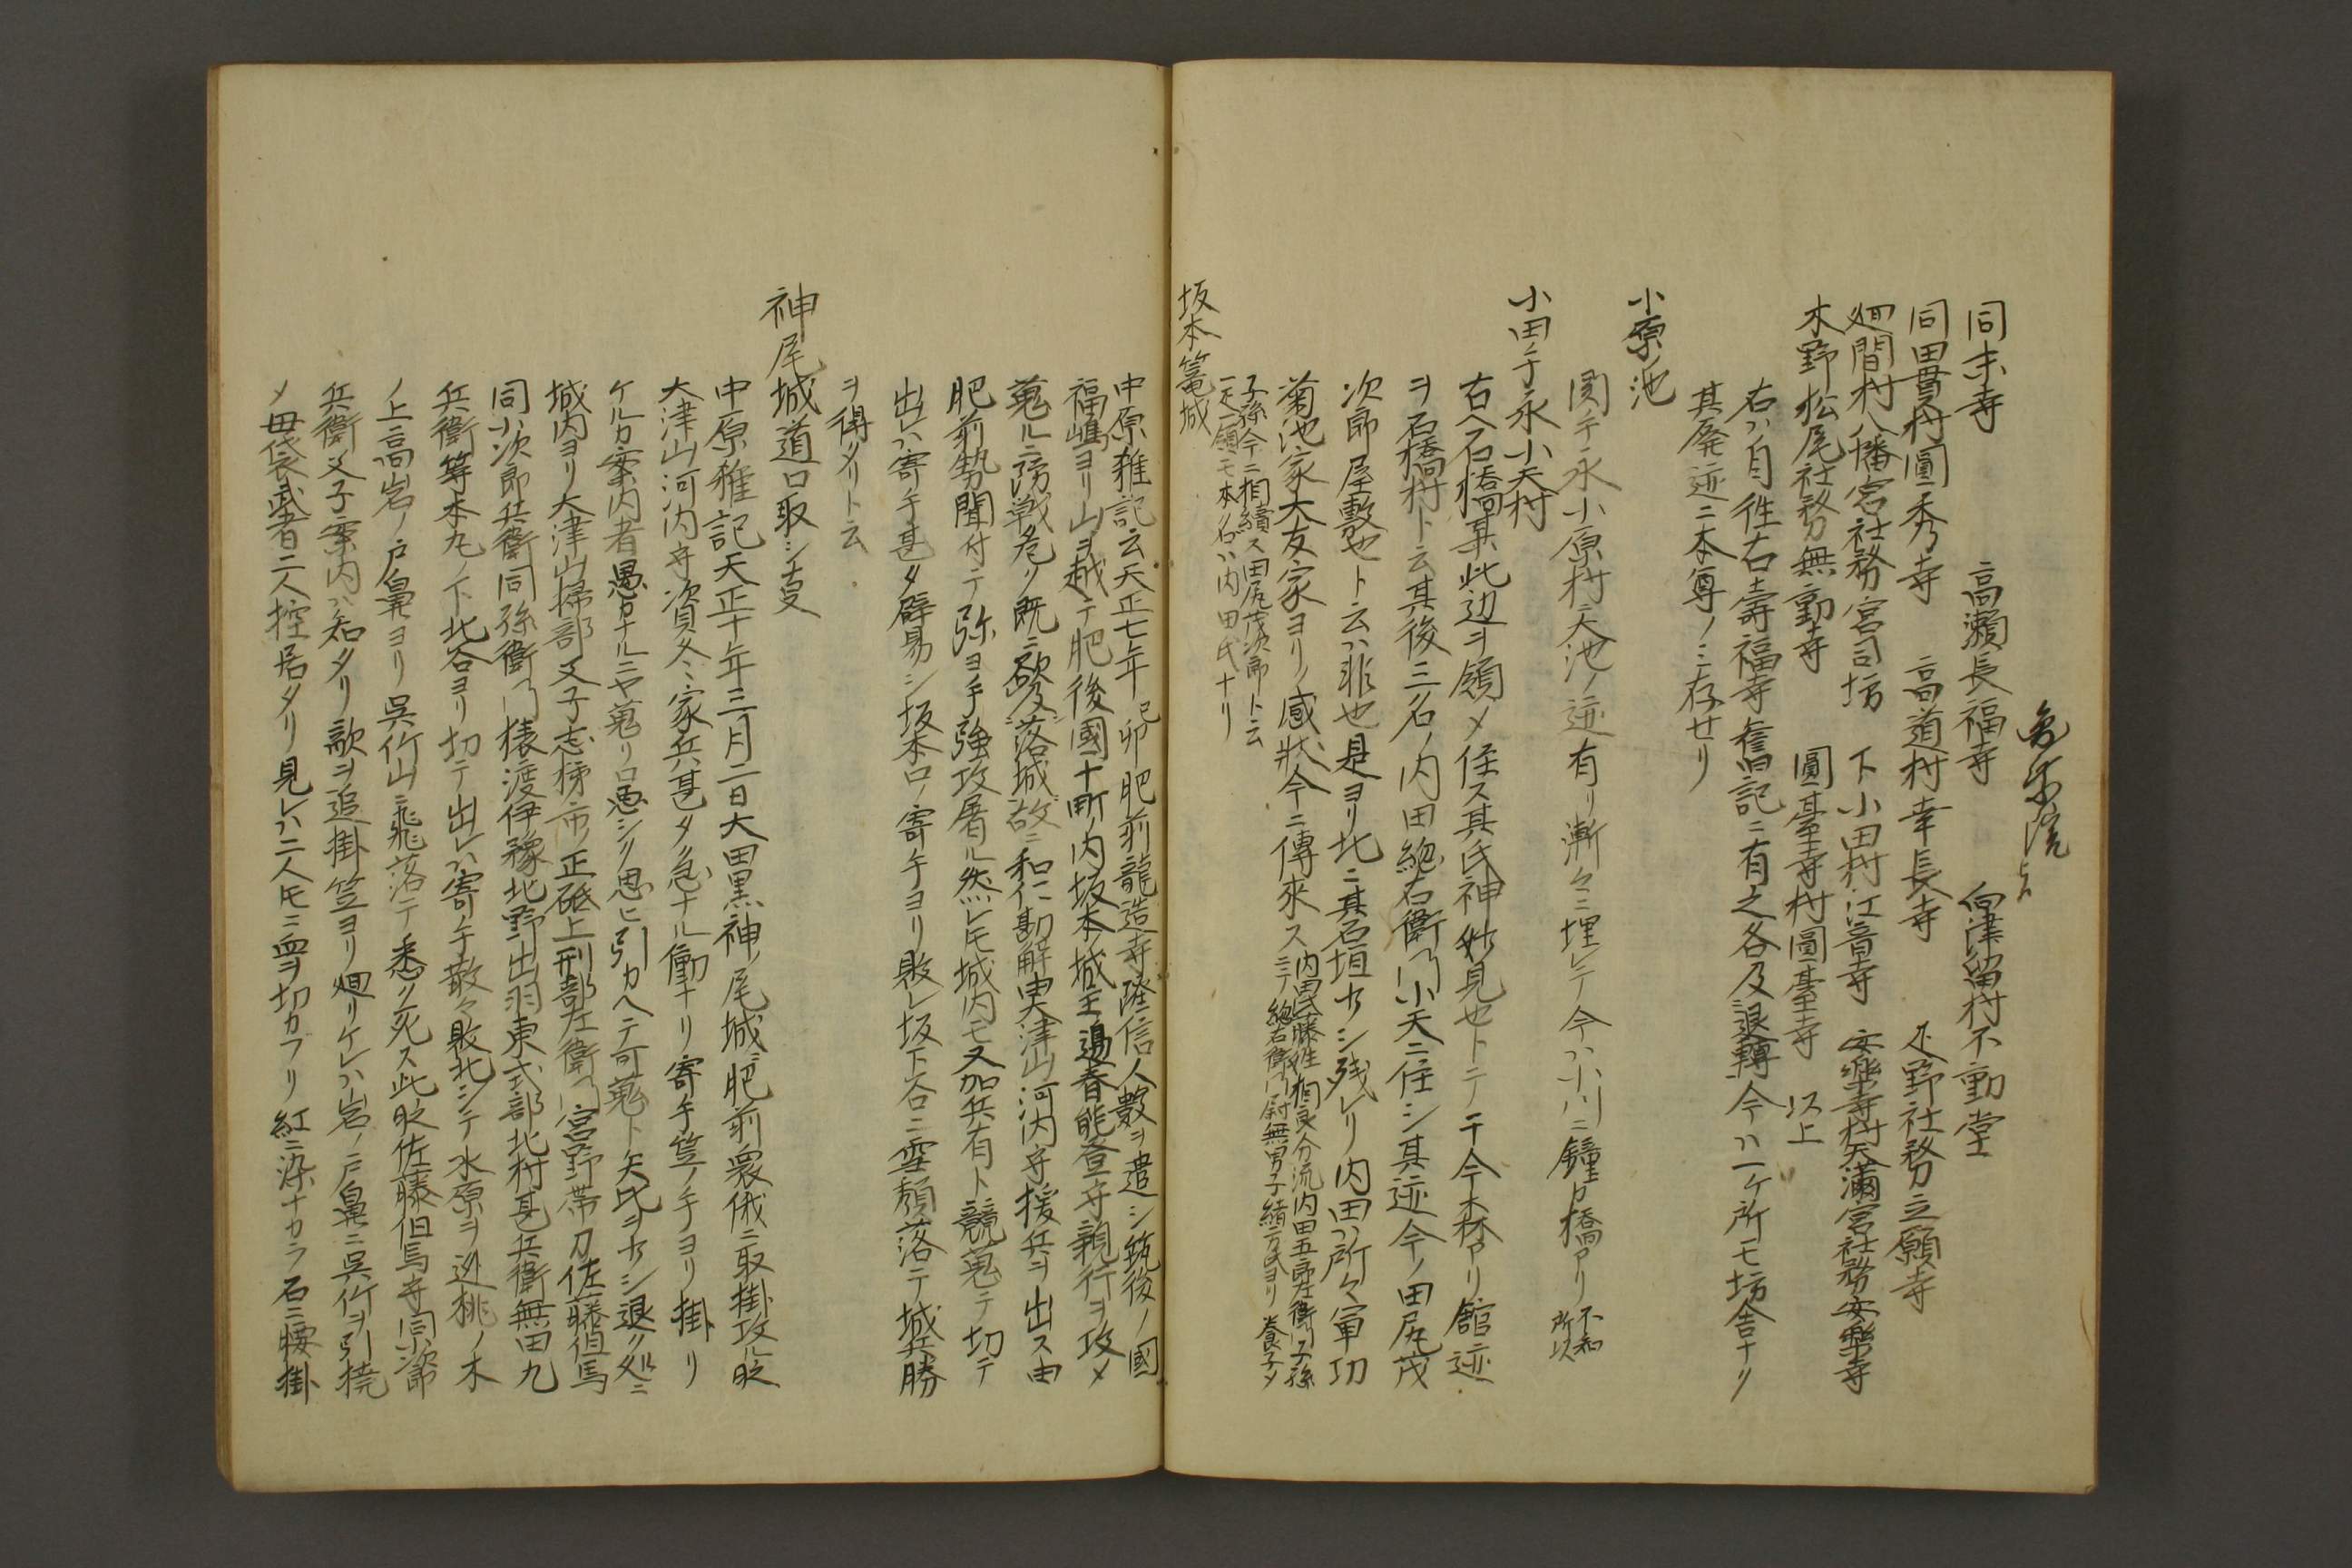 同末寺　高瀬長福寺　向津留村不動堂
同田貫村圓秀寺　高道村幸長寺　疋野社務立願寺
廻間村八幡宮社務宮司坊　下小田村江音寺　安樂寺村天滿宮社務安樂寺
木野松尾社務無動寺　圓臺寺村圓臺寺　以上
右ハ自往右壽福寺舊記ニ有之各及退轉今ハ一ケ所モ坊舎ナリ
其廃迹ニ本尊ノミ存セリ
小原ノ池
関手永小原村ニ大池ノ迹有リ漸々ニ埋レテ今ハ小川ニ鐘カ橋アリ不知所以
小田手永小天村
右ハ石橋某此辺ヲ領メ住ス其氏神妙見也トテ于今木杯アリ館迹
ヲ石橋村ト云其後三名ノ内田總右衛門小天ニ住シ其迹今ノ田尻茂
次郎屋敷也ト云ハ非也是ヨリ北ニ其石垣サシ残レリ内田ハ所々軍功
菊池家大友家ヨリノ感状今ニ傳来ス内田氏藤姓相良分流内田五郎左衛門子孫
ニテ總右衛門尉無男子緒方氏ヨリ養子メ
子孫今ニ相續ス田尻茂次郎ト云
一疋一領モ本名ハ内田氏ナリ
坂本篭城
中原雑記云天正七年己卯肥前龍造寺隆信人數ヲ遣シ筑後ノ國
福嶋ヨリ山ヲ越テ肥後國十町ノ内坂本城主邉春能登守親行ヲ攻メ
蒐ルニ防戦危ク既ニ欲及落城故ニ和仁勘解由大津山河内守援兵ヲ出ス由
肥前勢聞付テ弥ヨ手強攻屠ル然レ𪜈城内モ又加兵有ト競蒐テ切テ
出レハ寄手甚タ辟易シ坂本口ノ寄手ヨリ敗レ坂下谷ニ雪頽落テ城兵勝
ヲ得タリト云
神尾城道口取シ支
中原雑記天正十年三月二日大田黒神ノ尾城ニ肥前衆俄ニ取掛攻ル時
大津山河内守資冬家兵甚タ急ナル働ナリ寄手笠ノ手ヨリ掛リ
ケルカ案内者愚カナルニヤ蒐リ口悪シク思ヒ引カヘテ可蒐ト矢𪜈ヲサシ退ク処ニ
城内ヨリ大津山掃部父子志椽市ノ正砥上刑部左衛門宮野帯刀佐藤但馬
同小次郎兵衛同孫衛門猿渡伊豫北野出羽東式部北村甚兵衛無田九
兵衛等本丸ノ下北谷ヨリ切テ出レハ寄手散々敗北シテ水原ヲ逃桃ノ木
ノ上高岩ノ戸鼻ヨリ呉竹山ニ飛落テ悉ク死ス此時佐藤但馬守同小次郎
兵衛父子案内ハ知タリ敵ヲ追掛笠ヨリ廻リケレハ岩ノ戸鼻ニ呉竹ヲ引撓
メ毋袋武者二人控居タリ見レハ二人𪜈ニ面ヲ切カフリ紅ニ染ナカラ石ニ腰掛